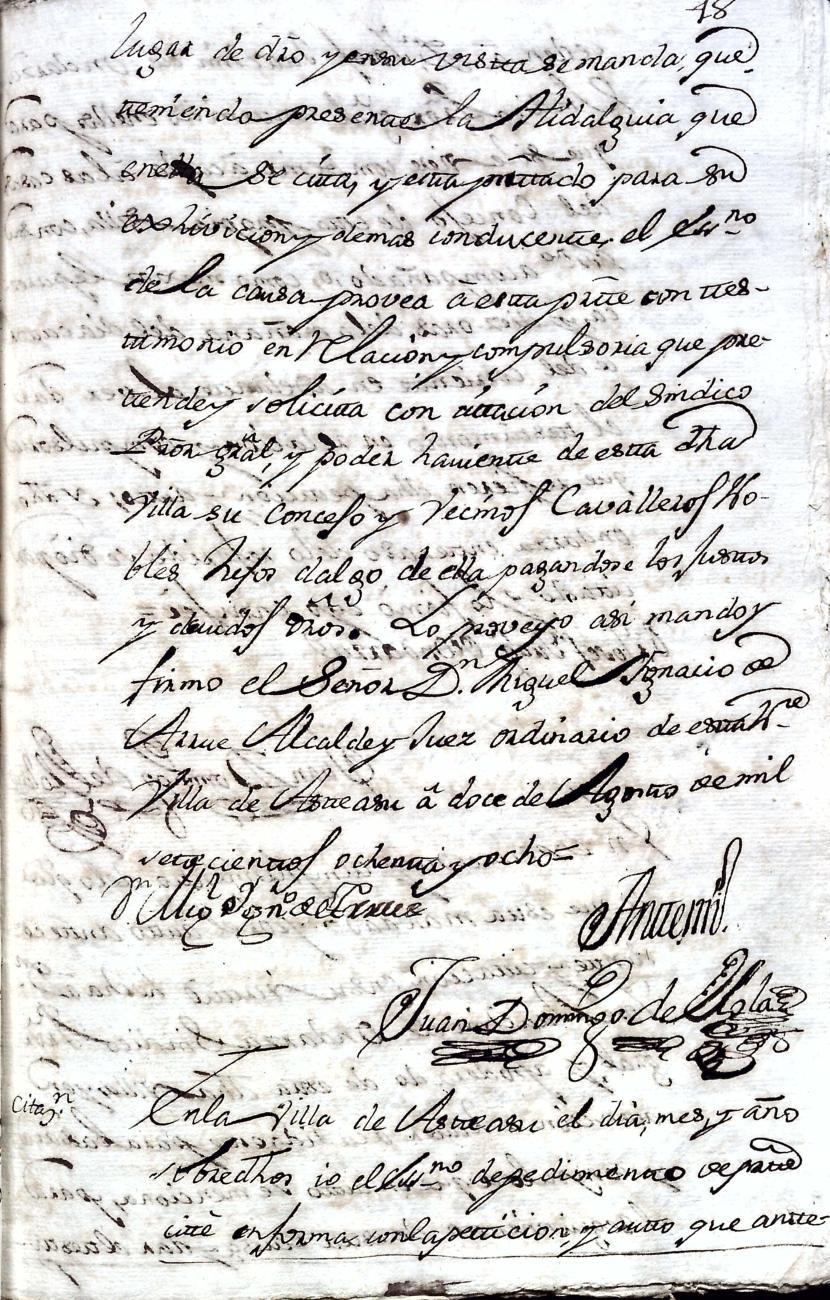 48
lugar de dro y en su vista se manda, que
teniendo presente la Hidalguia que
en ella se citta, y esta prttado para su
exhivicion y demas conducente, el Essno
de la causa provea â esta pte con ttes-
timonio en Relacion y compulsoria que pre-
ttende y solicitta con cittacion del Sindico
Pror gral, y poder haviente de esta dha
Villa su Concejo y Vecinos Cavalleros No-
bles hijos dalgo de ella pagandose los justos
y devidos dros. Lo proveyo asi mando y
firmo el Señor Dn Miguel Ignacio de
Arrue Alcalde y Juez ordinario de esta Ne
Villa de Asteasu â doce de Agosto de mil
settecientos ochenta y ocho=
Dn Migl Ygno de Arrue
Antemi
Juan Domingo de Ugla
Citazn
En la Villa de Asteasu el dia, mes, y año
sobredhos io el Essno de pedimento de parte
citte en forma con la peticion y autto que antte-